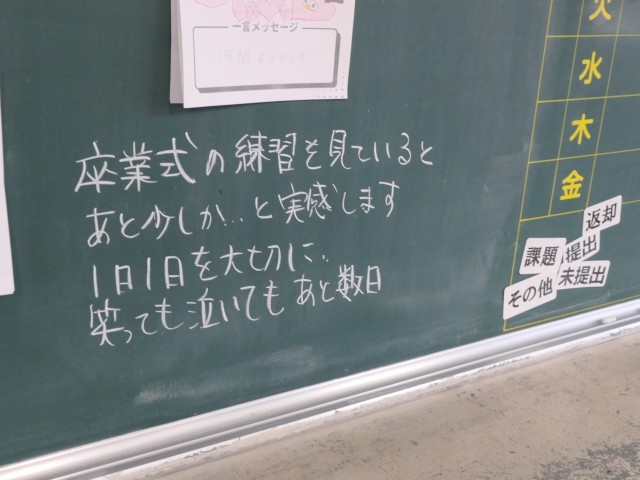 一言メッセージ
卒業式の練習を見ていると
あと少しか..と実感します
1日1日を大切に..
笑っても泣いてもあと数日
火
水
木
金
返却
課題
提出
その他
未提出